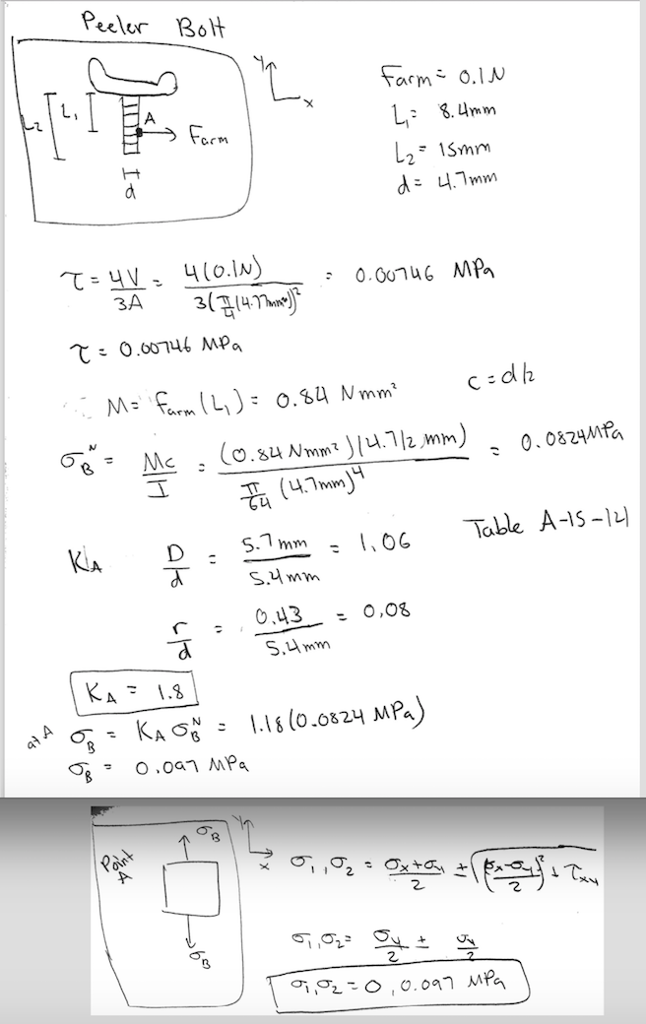 Peeler Bolt
y
x
L₂
L₁
A
Farm
d
Farm = 0.1N
L₁= 8.4mm
L₂= 15mm
d= 4.7mm
τ = 4V/3A = 4(0.1N)/3(π/4(4.77mm))² = 0.00746 MPa
τ = 0.00746 MPa
M= Farm(L₁) = 0.84 Nmm²
c=d/2
σ_B^N = Mc/I = (0.84 Nmm²)(4.7/2 mm)/π/64 (4.7mm)⁴ = 0.0824MPa
K_A D/d = 5.7mm/5.4mm = 1.06
Table A-15-12)
r/d = 0.43/5.4mm = 0,08
K_A = 1.8
at A σ_B = K_A σ_B^N = 1.18(0.0824 MPa)
σ_B = 0.097 MPa
Point A
σ_B
y
x
σ_B
σ₁,σ₂ = σx+σy/2 ± √(σx-σy/2)² + τxy
σ₁,σ₂= σy/2 ± σy/2
σ₁,σ₂ = 0, 0.097 MPa